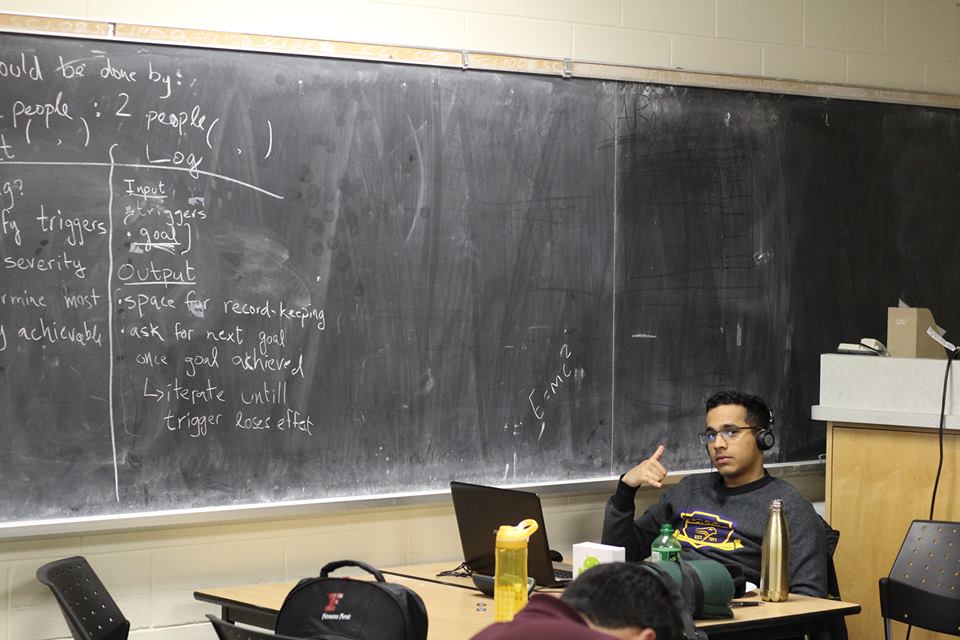 ould be done by:
people : 2 people( , )
Log
g?
fy triggers
severity
rmine most
y achievable
Input
triggers
• goal]
Output
• space for record-keeping
• ask for next goal
once goal achieved
↳ iterate untill
trigger loses effet
E=mc²
EST. 1971
F
Fitness First